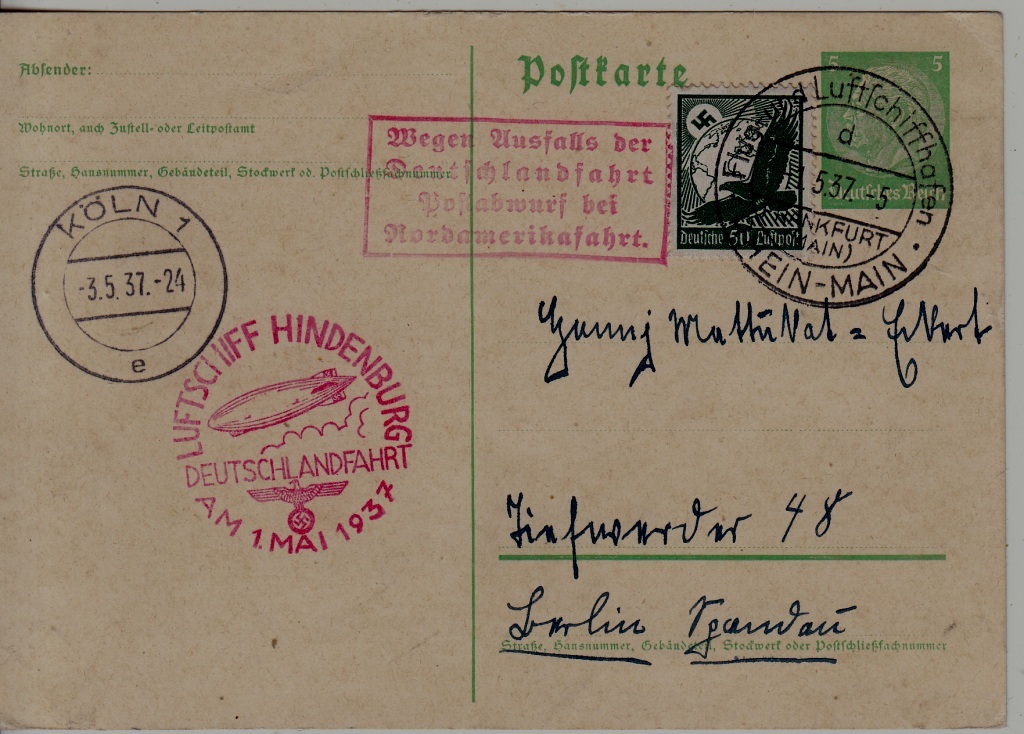 Absender:
Wohnort, auch Zustell- oder Leitpostamt
Straße, Hausnummer, Gebäudeteil, Stockwerk od. Postschließfachnummer
Postkarte
5 5
Deutsches Reich
Deutsche 50 Luftpost
Flug- und Luftschiffhafen
d
5.37. -5
FRANKFURT
(MAIN)
RHEIN-MAIN
Wegen Ausfalls der
Deutschlandfahrt
Postabwurf bei
Nordamerikafahrt.
KÖLN 1
-3.5.37.-24
e
LUFTSCHIFF HINDENBURG
DEUTSCHLANDFAHRT
AM 1. MAI 1937
Mattukat = Eckert
Tiefwerder 48
Berlin Spandau
Straße, Hausnummer, Gebäudeteil, Stockwerk oder Postschließfachnummer